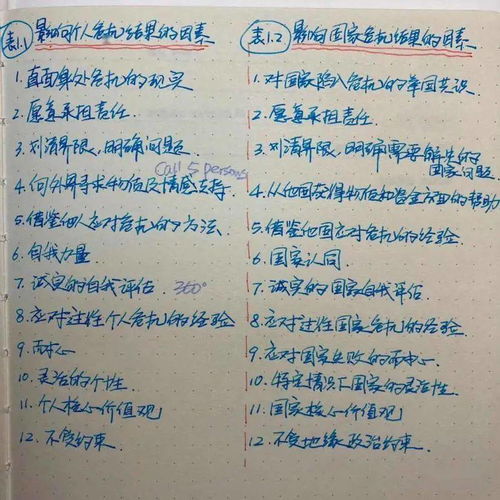 表1.1 影响个人危机结果的因素
1.直面身处危机的现实
2.愿意承担责任.
3.划清界限,明确问题
Call 5 persons
4.向外界寻求物质及情感支持.
5.借鉴他人应对危机的方法.
6.自我力量
7.诚实的自我评估 360°
8.应对过往个人危机的经验
9.耐心
10.灵活的个性.
11.个人核心价值观
12.不受约束.
表1.2 影响国家危机结果的因素
1.对国家陷入危机的举国共识
2.愿意承担责任.
3.划清界限,明确需要解决的
国家问题.
4.从他国获得物质和资金方面的帮助
5.借鉴他国应对危机的经验.
6.国家认同
7.诚实的国家自我评估.
8.应对过往国家危机的经验.
9.应对国家失败的耐心.
10.特定情况下国家的灵活性.
11.国家核心价值观
12.不受地缘政治约束.